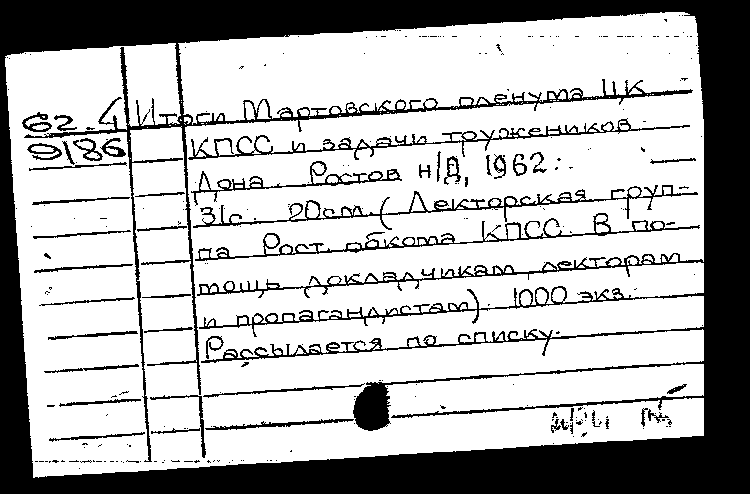 62.4 Итоги Мартовского пленума ЦК
9186 КПСС и задачи тружеников
Дона. Ростов н/Д, 1962.
31с. 20см. (Лекторская груп-
па Рост. обкома КПСС. В по-
мощь докладчикам, лекторам
и пропагандистам). 1000 экз.
Рассылается по списку.